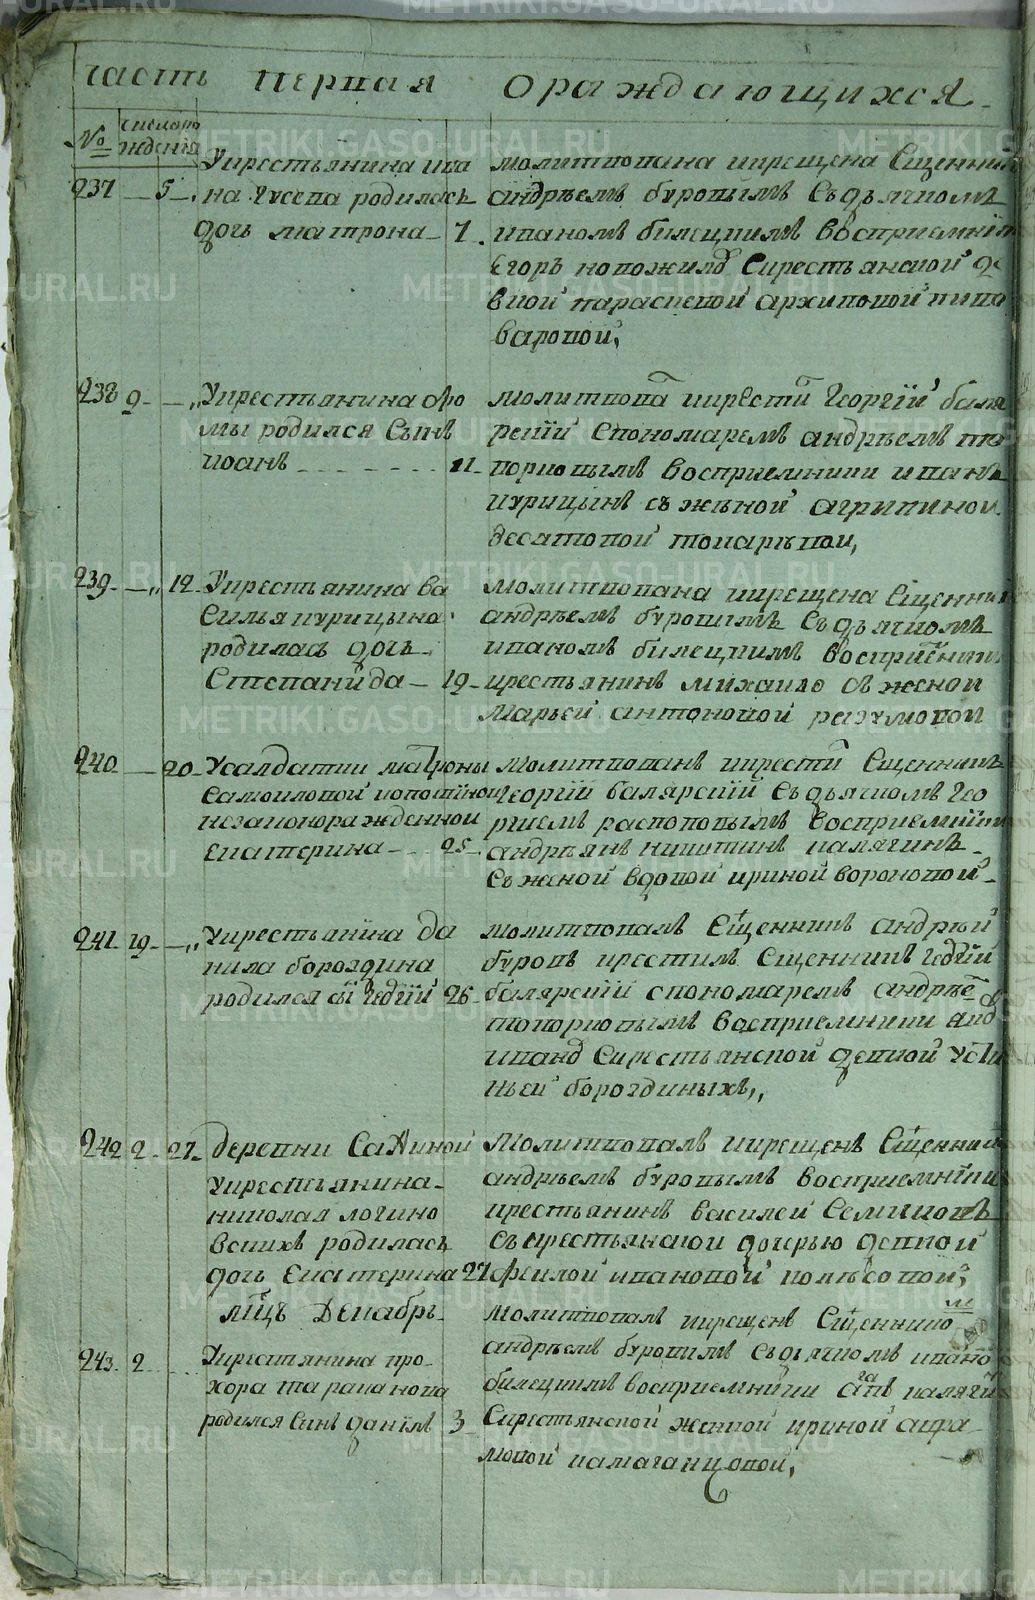 часть первая
о раждающихся
№
число рождения
237 5
У крестьянина Ива
на Гусева родилась
дочь матрона 7
молитвована и крещена Священни
андрѣемъ буровымъ Съ дьячкомъ
иваномъ билецкимъ восприемни
Егоръ коножилов Скрестьянской де
вкой параскевой архиповой пиво
варовой,
238 9
У крестьянина Фо
мы родился Сынъ
иоанъ 11
молитвова и крести Георгiй баля
рскiй Спономаремъ андрѣемъ то
порковымъ восприемники иванъ
курицынъ съ женой агрипиной
десятовой токаревой,
239 12
У крестьянина ва
Силья курицына
родилась дочь
Степанида 19
молитвована и крещена Священни
андрѣемъ буровымъ Съ дьячкомъ
иваномъ билецкимъ восприемни
крестьянинъ михаило съ женой
марьей антоновой разумовой
240 20
У салдатки матроны
Самоиловой
незаконорожденной
Екатерина 25
молитвованъ и крести Священникъ
Георгiй балярскiй Съ дьячкомъ Гео
ргиемъ распоповымъ восприемни
андрѣянъ никитинъ калягинъ
Съ женой вдовой ириной вороновой
241 19
У крестьянина да
нила бороздина
родился сы Георгiй 26
молитвовалъ Священникъ андрѣй
буровъ крестилъ Священникъ Георгiй
балярскiй спономаремъ андрѣе
топорковымъ восприемники
иванъ Скрестьянской девкой Усти
ньей бороздиныхъ,
242 2 27
деревни Савиной
У крестьянина
николая логино
вскихъ родилась
дочь Екатерина 27
молитвовалъ и крещенъ Священни
андрѣемъ буровымъ восприемники
крестьянинъ василей Семиновъ
Съ крестьянской дочерью девкой
феклой ивановой колясовой,
мцъ Декабрь
243 2
У крестьянина про
хора тараканова
родился Сынъ данiилъ 3
молитвовалъ и крещенъ Священнико
андрѣемъ буровымъ Съ дьячкомъ ивано
билецкимъ восприемники калягин
Скрестьянской женкой ириной афа
мовой камаганцовой,
METRIKI.GASO-URAL.RU